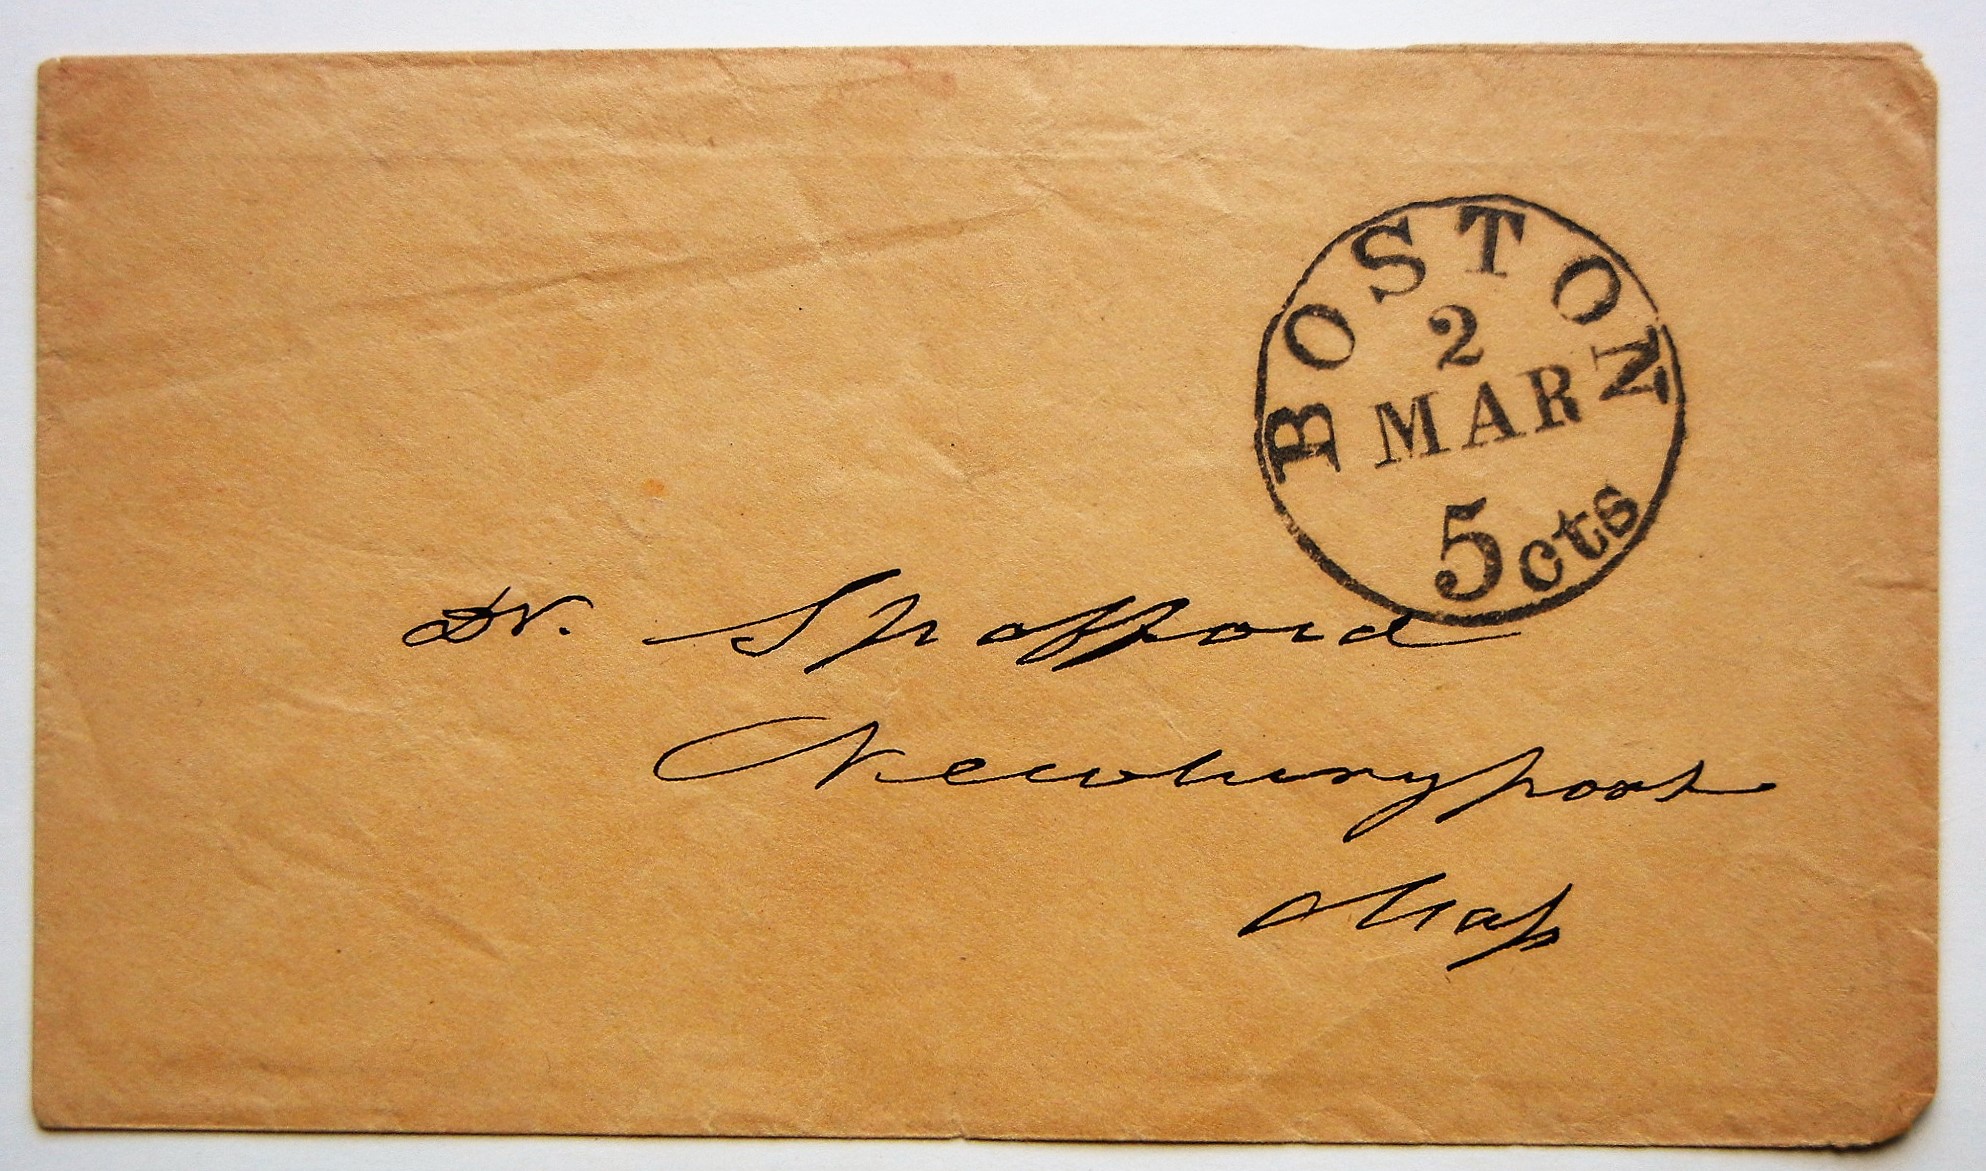 BOSTON
2
MAR
5cts
Dr. Spofford
Newburyport
Mass